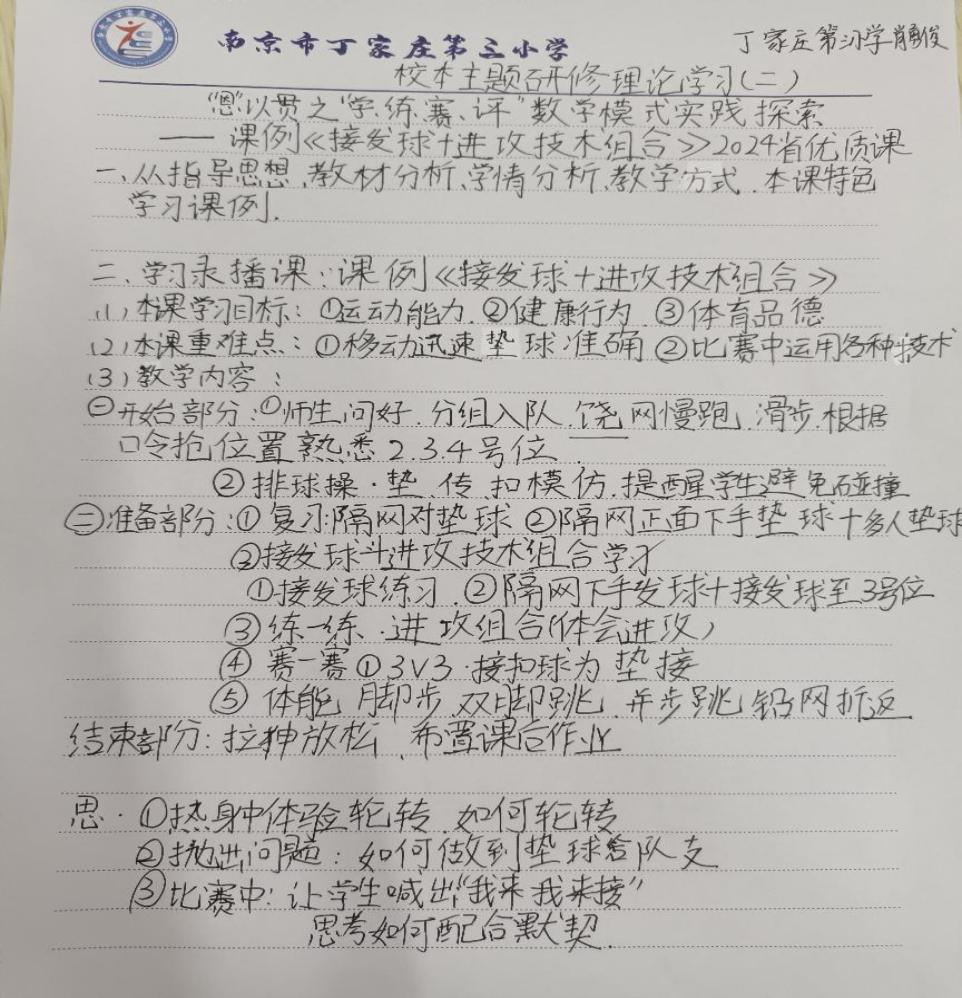 南京市丁家庄第三小学
丁家庄第三小学肖俊
校本主题研修理论学习(二)
“思”以贯之“学、练、赛、评”数学模式实践探索
——课例《接发球+进攻技术组合》2024省优质课
一、从指导思想、教材分析、学情分析、教学方式、本课特色
学习课例.
二、学习录播课：课例《接发球+进攻技术组合》
(1)本课学习目标：①运动能力.②健康行为.③体育品德
(2)本课重难点：①移动迅速垫球准确②比赛中运用各种技术
(3)教学内容：
㊀开始部分：①师生问好.分组入队.绕网慢跑.滑步.根据
口令抢位置熟悉2.3.4号位.
②排球操·垫、传、扣模仿.提醒学生避免碰撞
㊁准备部分：①复习:隔网对垫球②隔网正面下手垫球+多人垫球
②接发球+进攻技术组合学习
①接发球练习.②隔网下手发球+接发球至3号位
③练一练.进攻组合(体会进攻)
④赛一赛①3V3·接扣球为垫接
⑤体能 脚步 双脚跳 并步跳 折返
结束部分：拉伸放松.布置课后作业
思·①热身中体验轮转.如何轮转
②抛出问题：如何做到垫球给队友
③比赛中：让学生喊出“我来我来接”
思考如何配合默契.